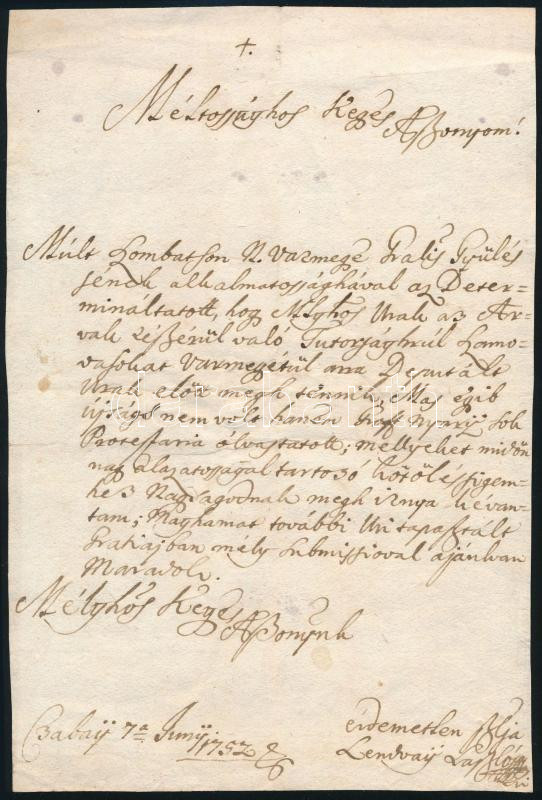 +.
Méltosághos Kegēs
Aszonyom!
Múlt Szombatson N. Varmegē Gralis Gyülés
sének alkalmatossághával az Deter-
mináltatott, hog Mlghos Urak az Ar-
vak részérül való Tutorságrúl
Varmegyétül arra Deputált
Urak előt megh tennék, Más egib
ujságh nem volt hanem Groff Nyary sok
Protestatia olvastatott; mellyeket midőn
nag alazatossággal tartozó kötölességem-
hez Nagságodnak megh irnya kévan-
tam; Maghamat további Uri tapasztált
Gratiajban mély submissioval ajánlván
Maradok.
Mélghos Kegēs
Aszonÿnk
Csabaÿ 7a Junij
1752
érdemetlen szolgja
Lendvaÿ László